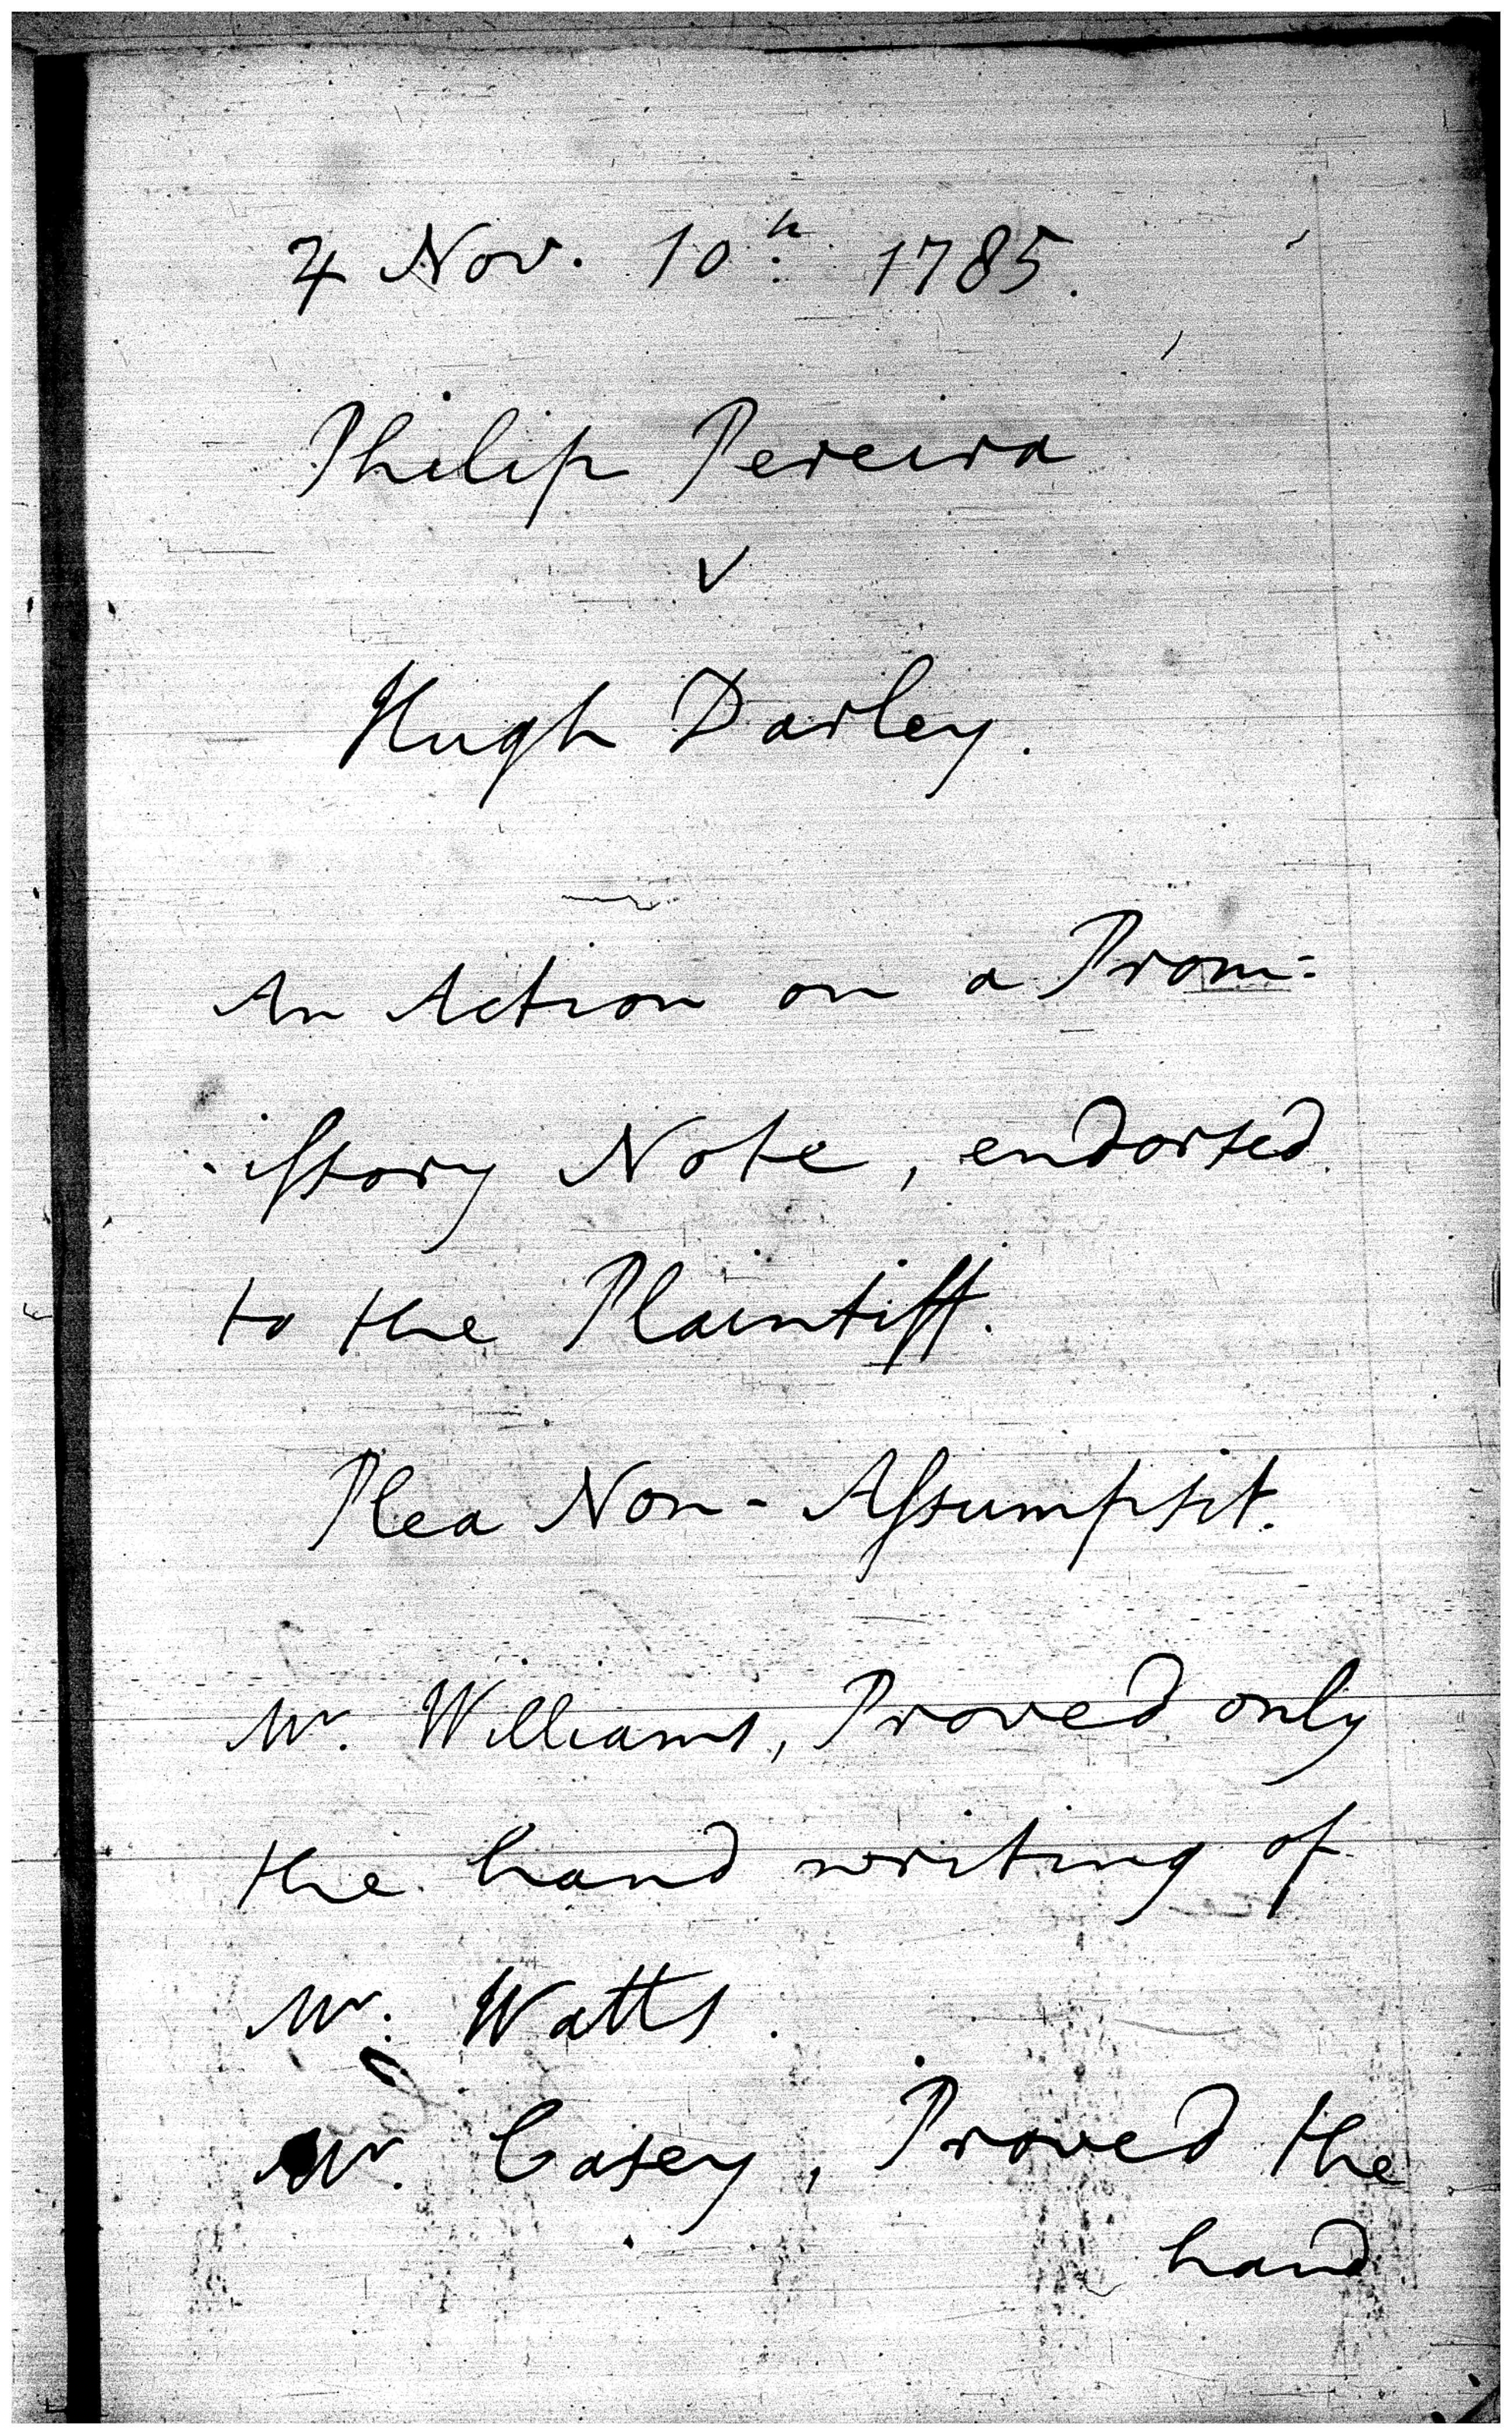 ♃ Nov. 10.th 1785.
Philip Pereira
v
Hugh Darley.
An Action on a Prom=
.issory Note, endorsed
to the Plaintiff.
Plea Non-Assumpsit.
Mr. Williams, Proved only
the hand writing of
Mr. Watts.
Mr. Casey, Proved the
hand